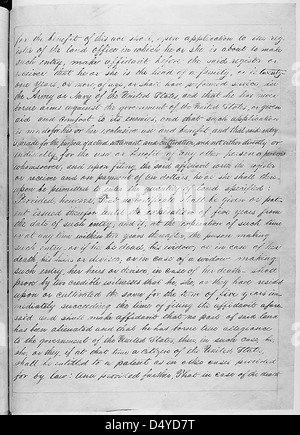 for the benefit of this act shall, upon application to the reg
ister of the land office in which he or she is about to make
such entry, make affidavit before the said register or
receiver that he or she is the head of a family, or is twenty
one years, or more of age, or shall have performed service in
the Army or Navy of the United States, and that he has never
borne arms against the government of the United States, or given
aid and comfort to its enemies, and that such application
is made for his or her exclusive use and benefit, and that said entry
is made for the purpose of actual settlement and cultivation, and not either directly or
indirectly, for the use or benefit of any other person or persons
whomsoever and upon filing the said affidavit with the register
or receiver and on payment of ten dollars, he or she shall there
upon be permitted to enter the quantity of land specified:
Provided, however, That no certificate shall be given or pat
ent issued therefor until the expiration of five years from
the date of such entry; and if, at the expiration of such time
or at any time within two years thereafter, the person making
such entry, or if he be dead, his widow, or in case of her
death, his heirs or devisee, or in case of a widow making
such entry, her heirs or devisee, in case of her death shall
prove by two credible witnesses that he, she, or they have resided
upon or cultivated the same for the term of five years im
mediately succeeding the time of filing the affidavit afore
said and shall make affidavit that no part of said land
has been alienated and that he has borne true allegiance
to the government of the United States; then in such case, he
she, or they, if at that time a citizen of the United States,
shall be entitled to a patent as in other cases provided
for by law: And provided further, That in case of the death
a
alamy
D4YD7T